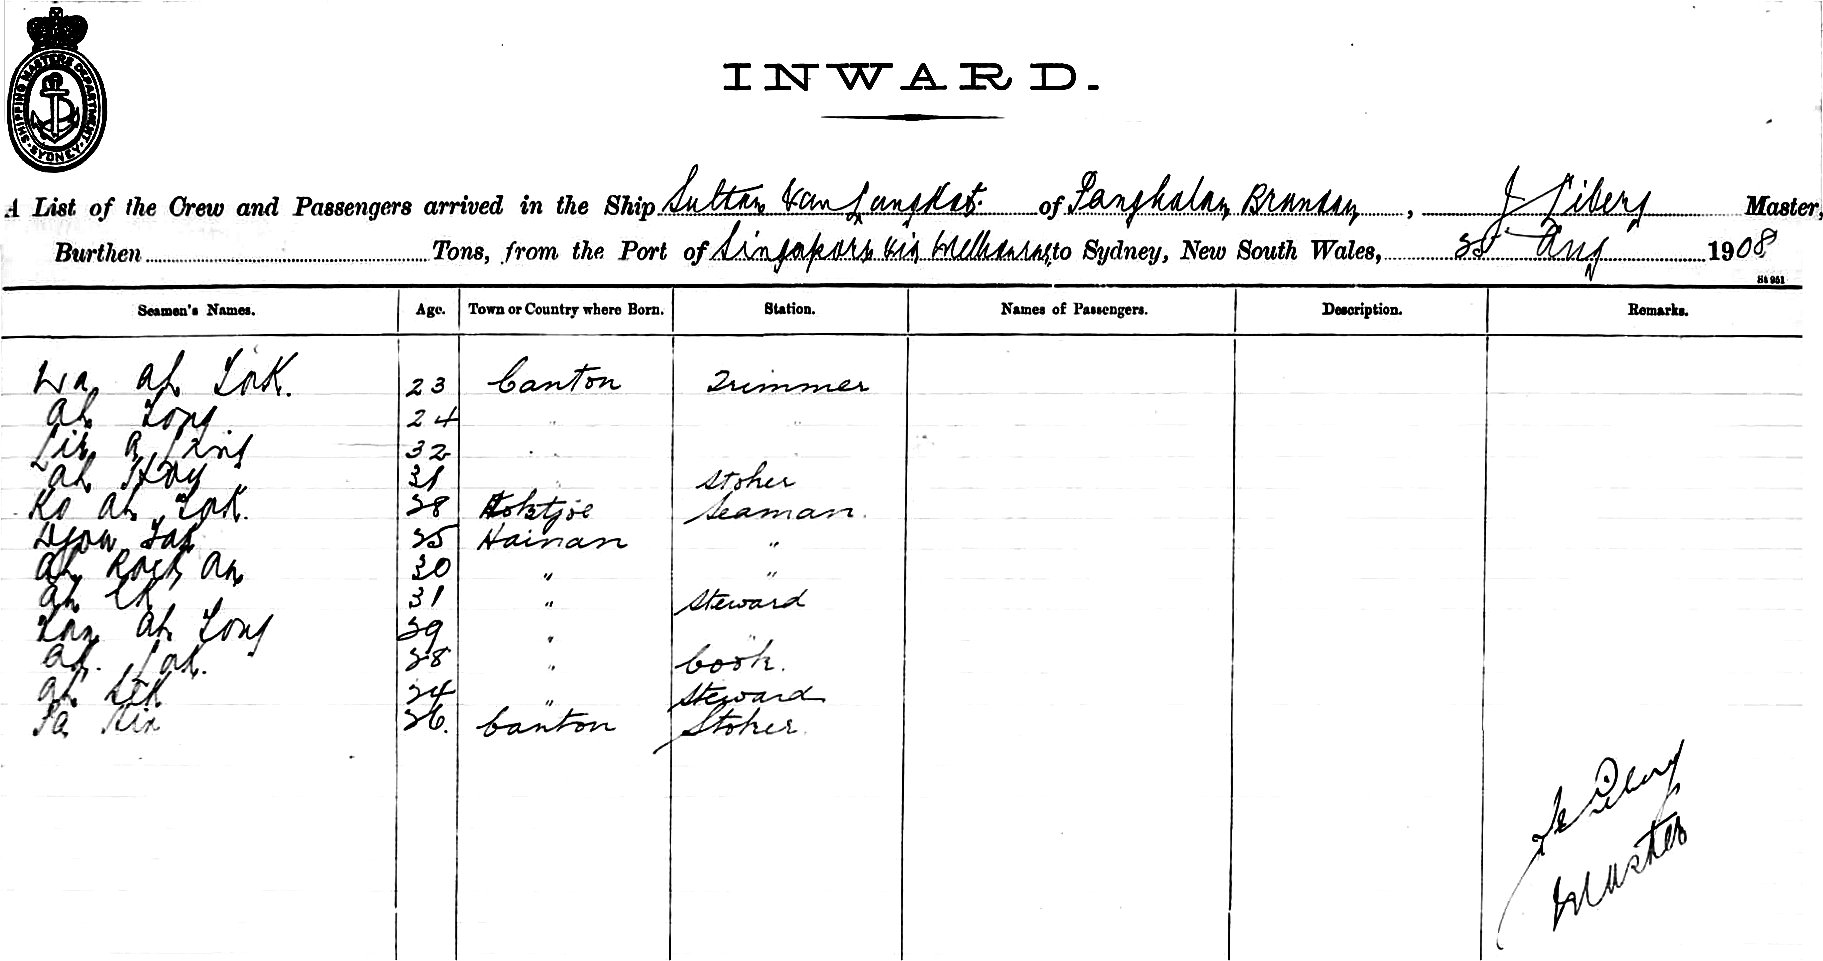 SHIPPING MASTERS DEPARTMENT SYDNEY
INWARD.
A List of the Crew and Passengers arrived in the Ship Sultan van Langkat. of Pangkalan Brandan, J Liberg Master,
Burthen Tons, from the Port of Singapore via Melbourne to Sydney, New South Wales, 25 Aug 1908
Seamen's Names. Age. Town or Country where Born. Station. Names of Passengers. Description. Remarks.
Wa Ah Tok. 23 Canton Trimmer
Ah Tong 24 " "
Lik A 32 "
Ah Hoy 31 " Stoker
Ko Ah Tok. 28 Seaman.
25 Hainan "
Ah 30 " "
Ah 31 " Steward
Tan Ah Tong 29 " "
Ah. 28 " Cook.
Ah 24 " Steward
26. Canton Stoker.
Master